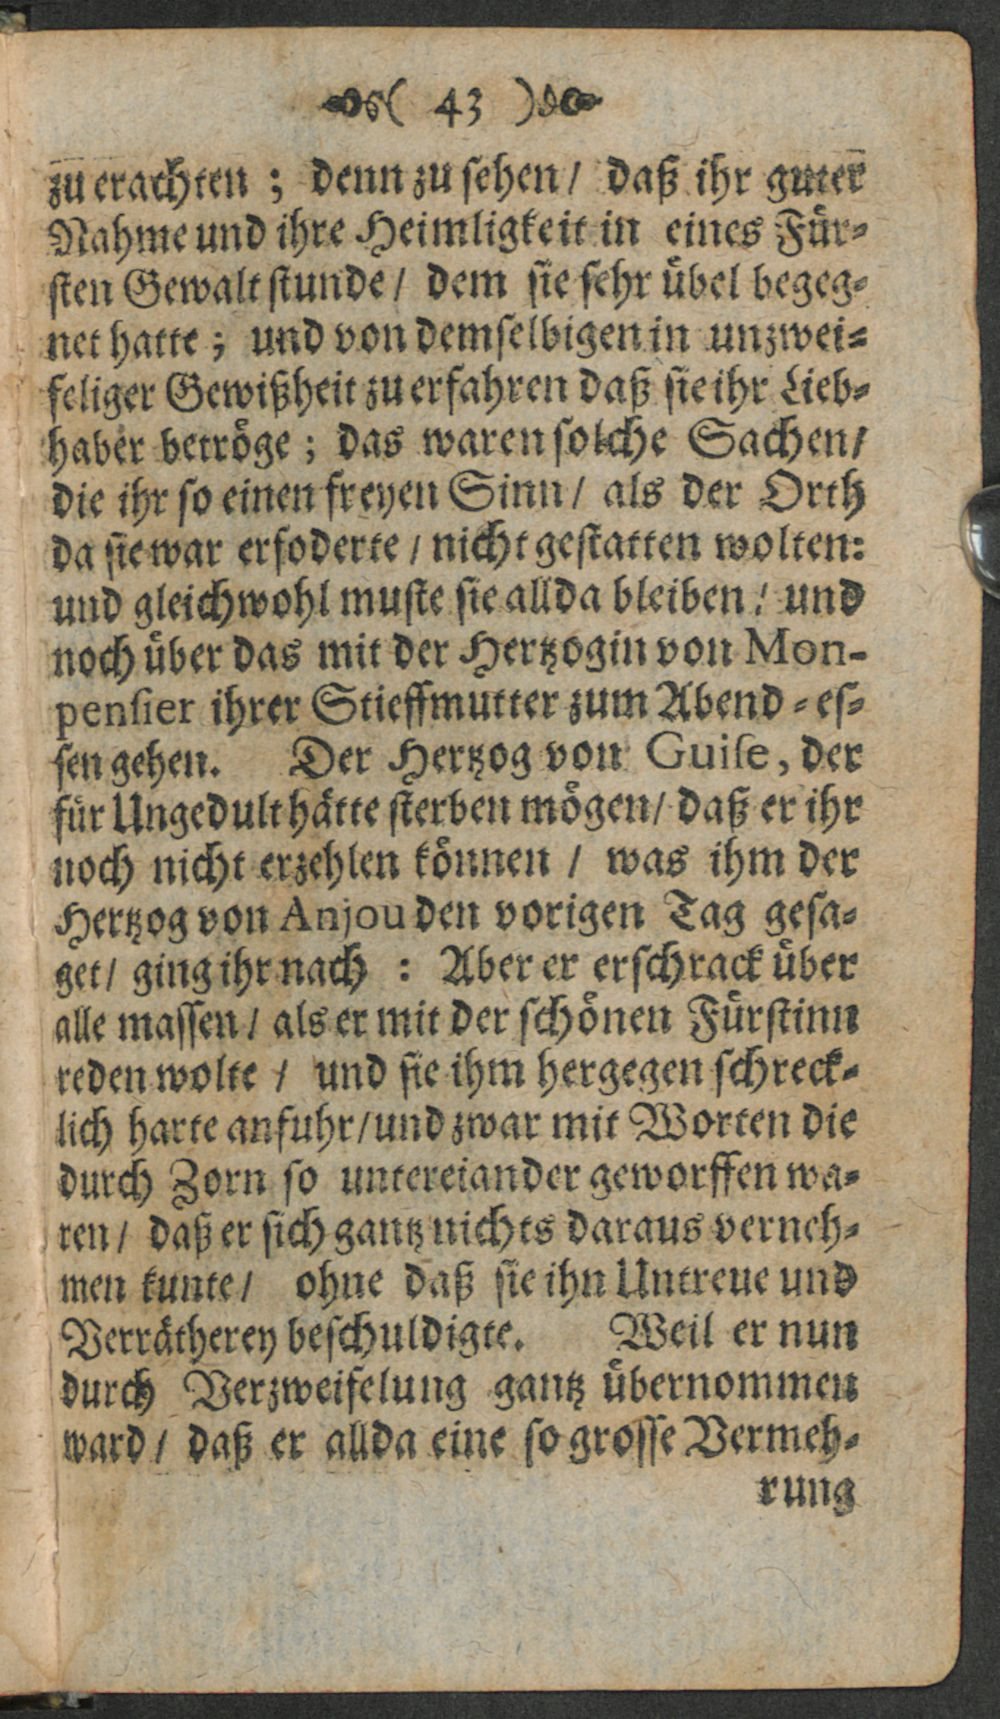 ( 43 )
zu erachten ; denn zu sehen / daß ihr guter
Nahme und ihre Heimligkeit in eines Für-
sten Gewalt stunde / dem sie sehr übel begeg-
net hatte ; und von demselbigen in unzwei-
feliger Gewißheit zu erfahren daß sie ihr Lieb-
haber betröge ; das waren solche Sachen /
die ihr so einen freyen Sinn / als der Orth
da sie war erfoderte / nicht gestatten wolten:
und gleichwohl muste sie allda bleiben / und
noch über das mit der Hertzogin von Mon-
pensier ihrer Stieffmutter zum Abend-es-
sen gehen. Der Hertzog von Guise, der
für Ungedult hätte sterben mögen / daß er ihr
noch nicht erzehlen können / was ihm der
Hertzog von Anjou den vorigen Tag gesa-
get / ging ihr nach : Aber er erschrack über
alle massen / als er mit der schönen Fürstinn
reden wolte / und sie ihm hergegen schreck-
lich harte anfuhr / und zwar mit Worten die
durch Zorn so untereiander geworffen wa-
ren / daß er sich gantz nichts daraus verneh-
men kunte / ohne daß sie ihn Untreue und
Verrätherey beschuldigte. Weil er nun
durch Verzweifelung gantz übernommen
ward / daß er allda eine so grosse Vermeh-
rung